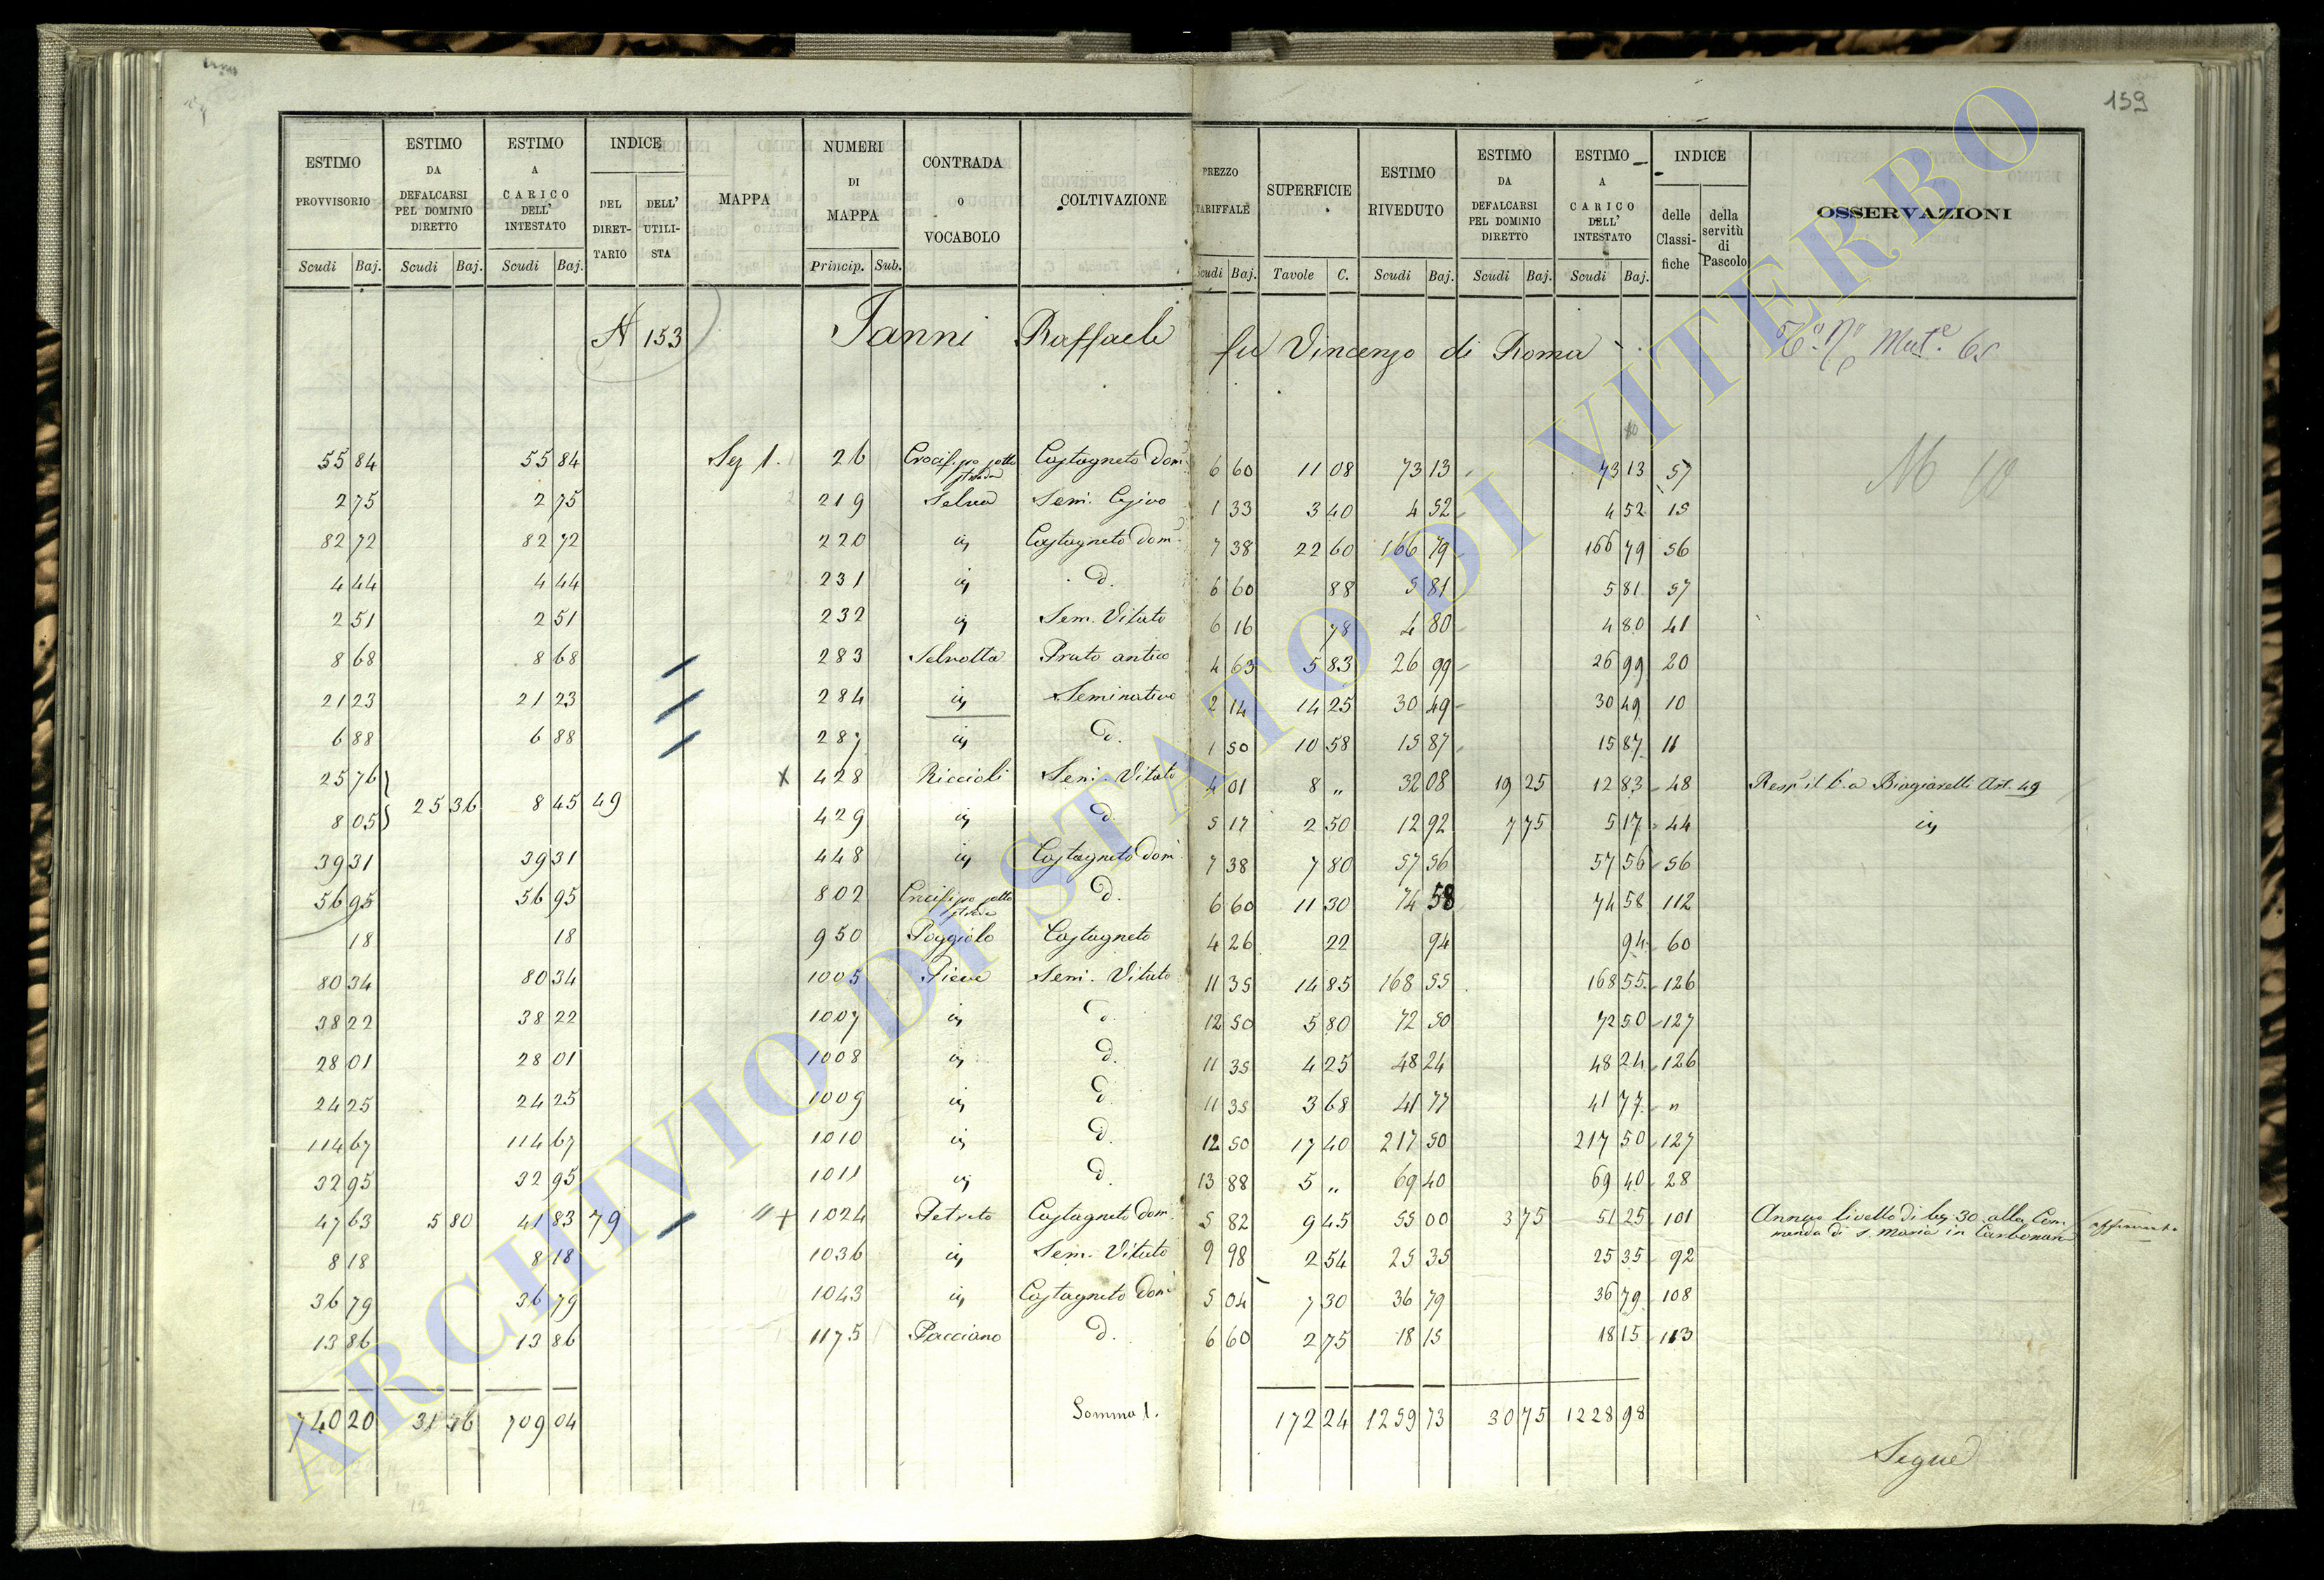 159
ESTIMO PROVVISORIO ESTIMO DA DEFALCARSI PEL DOMINIO DIRETTO ESTIMO A CARICO DELL' INTESTATO INDICE DEL DIRET-TARIO DELL' UTILI-STA MAPPA NUMERI DI MAPPA CONTRADA O VOCABOLO COLTIVAZIONE PREZZO TARIFFALE SUPERFICIE ESTIMO RIVEDUTO ESTIMO DA DEFALCARSI PEL DOMINIO DIRETTO ESTIMO A CARICO DELL' INTESTATO INDICE delle Classi-fiche della servitù di Pascolo OSSERVAZIONI
Scudi Baj. Scudi Baj. Scudi Baj. Princip. Sub. Scudi Baj. Tavole C. Scudi Baj. Scudi Baj. Scudi Baj.
N 153 Ianni Raffaele fu Vincenzo di Roma
55 84 55 84 Sez 1. 26 Crocifisso sotto strada Castagneto Dom. 6 60 11 08 73 13 73 13 57
2 75 2 75 219 Selva Sem. 1 33 3 40 4 52 4 52 15
82 72 82 72 220 Castagneto Dom. 7 38 22 60 166 79 166 79 56
4 44 4 44 231 d. 6 60 88 5 81 5 81 57
2 51 2 51 232 Sem. Vitato 6 16 78 4 80 4 80 41
8 68 8 68 283 Selvotta Prato antico 4 63 5 83 26 99 26 99 20
21 23 21 23 284 Seminativo 2 14 14 25 30 49 30 49 10
6 88 6 88 287 d. 1 50 10 58 15 87 15 87 11
25 76 x 428 Riccioli Sem. Vitato 4 01 8 „ 32 08 19 25 12 83 48 a Biagiarelli Art. 49
8 05 25 36 8 45 49 429 d. 5 17 2 50 12 92 7 75 5 17 44
39 31 39 31 448 Castagneto Dom. 7 38 7 80 57 56 57 56 56
56 95 56 95 802 Crocifisso sotto strada d. 6 60 11 30 74 58 74 58 112
18 18 950 Poggiolo Castagneto 4 26 22 94 94 60
80 34 80 34 1005 Pieve Sem. Vitato 11 35 14 85 168 55 168 55 126
38 22 38 22 1007 d. 12 50 5 80 72 50 72 50 127
28 01 28 01 1008 d. 11 35 4 25 48 24 48 24 126
24 25 24 25 1009 d. 11 35 3 68 41 77 41 77 "
114 67 114 67 1010 d. 12 50 17 40 217 50 217 50 127
32 95 32 95 1011 d. 13 88 5 „ 69 40 69 40 28
47 63 5 80 41 83 79 + 1024 Petreto Castagneto Dom. 5 82 9 45 55 00 3 75 51 25 101 Annuo livello di 30 alla Com
menda di S. Maria in Carbonara
8 18 8 18 1036 Sem. Vitato 9 98 2 54 25 35 25 35 92
36 79 36 79 1043 Castagneto Dom. 5 04 7 30 36 79 36 79 108
13 86 13 86 1175 Pacciano d. 6 60 2 75 18 15 18 15 113
740 20 31 16 709 04 Somma 1. 172 24 1259 73 30 75 1228 98
Segue
ARCHIVIO DI STATO DI VITERBO